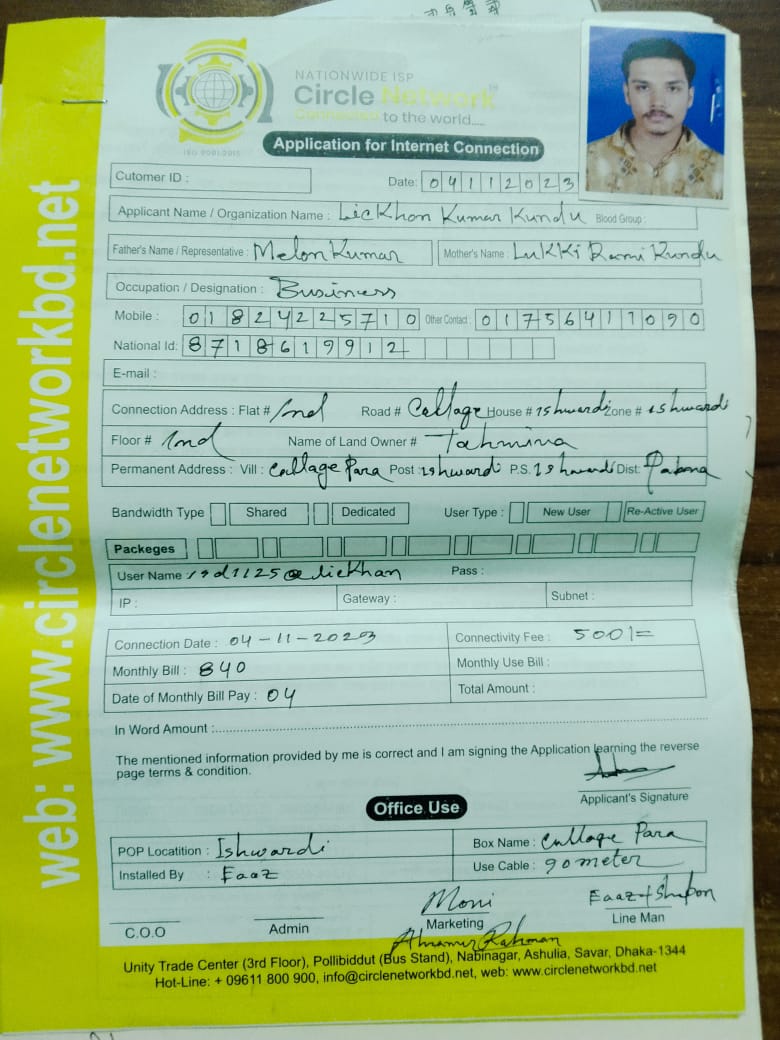 NATIONWIDE ISP
Circle Network
Connected to the world.....
ISO 9001:2015
Application for Internet Connection
Cutomer ID :
Date: 04112023
Applicant Name / Organization Name : Lickhon Kumar Kundu Blood Group :
Father's Name / Representative : Melon Kumar Mother's Name : Lukki Rani Kundu
Occupation / Designation : Business
Mobile : 01824225710 Other Contact : 01756411090
National Id: 8718619912
E-mail :
Connection Address : Flat # 2nd Road # Callage House # Ishwardi Zone # Ishwardi
Floor # 2nd Name of Land Owner # Tahmina
Permanent Address : Vill : Callage Para Post : Ishwardi P.S. Ishwardi Dist: Pabna
Bandwidth Type Shared Dedicated User Type : New User Re-Active User
Packeges
User Name : isd1125@lickhan Pass :
IP : Gateway : Subnet :
Connection Date : 04-11-2023 Connectivity Fee : 500/=
Monthly Bill : 840 Monthly Use Bill :
Date of Monthly Bill Pay : 04 Total Amount :
In Word Amount :
The mentioned information provided by me is correct and I am signing the Application learning the reverse
page terms & condition.
Applicant's Signature
Office Use
POP Locatition : Ishwardi Box Name : Callage Para
Installed By : Eaaz Use Cable : 90 meter
Moni Eaaz + Shupon
C.O.O Admin Marketing Line Man
Rahman
Unity Trade Center (3rd Floor), Pollibiddut (Bus Stand), Nabinagar, Ashulia, Savar, Dhaka-1344
Hot-Line: + 09611 800 900, info@circlenetworkbd.net, web: www.circlenetworkbd.net
web: www.circlenetworkbd.net